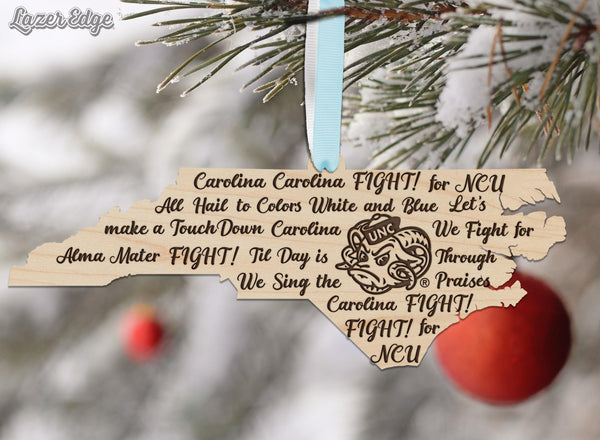 Lazer Edge
Carolina Carolina FIGHT! for NCU
All Hail to Colors White and Blue Let's
make a TouchDown Carolina We Fight for
Alma Mater FIGHT! Til Day is Through
UNC
We Sing the Praises
®
Carolina FIGHT!
FIGHT! for
NCU